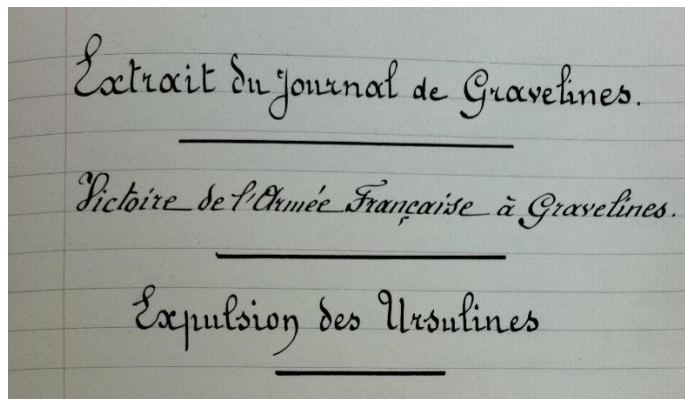 Extrait du Journal de Gravelines.
Victoire de l'Armée Française à Gravelines.
Expulsion des Ursulines